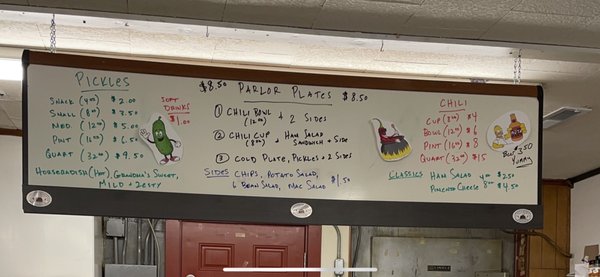 PICKLES
SNACK (4oz) $2.00
SMALL (8oz) $3.50
MED. (12oz) $5.00
PINT (16oz) $6.50
QUART (32oz) $9.50
HORSERADISH (HOT), GRANDMA'S SWEET,
MILD + ZESTY
SOFT
DRINKS
$1.00
$8.50 PARLOR PLATES $8.50
① CHILI BOWL + 2 SIDES
(12oz)
② CHILI CUP + HAM SALAD
(8oz) SANDWICH + SIDE
③ COLD PLATE, PICKLES + 2 SIDES
SIDES CHIPS, POTATO SALAD,
6 BEAN SALAD, MAC SALAD $1.50
CHILI
CUP (8oz) $4
BOWL (12oz) $6
PINT (16oz) $8
QUART (32oz) $15
CLASSICS HAM SALAD 4oz $2.50
PIMENTO CHEESE 8oz $4.50
$3.50
YUMMY